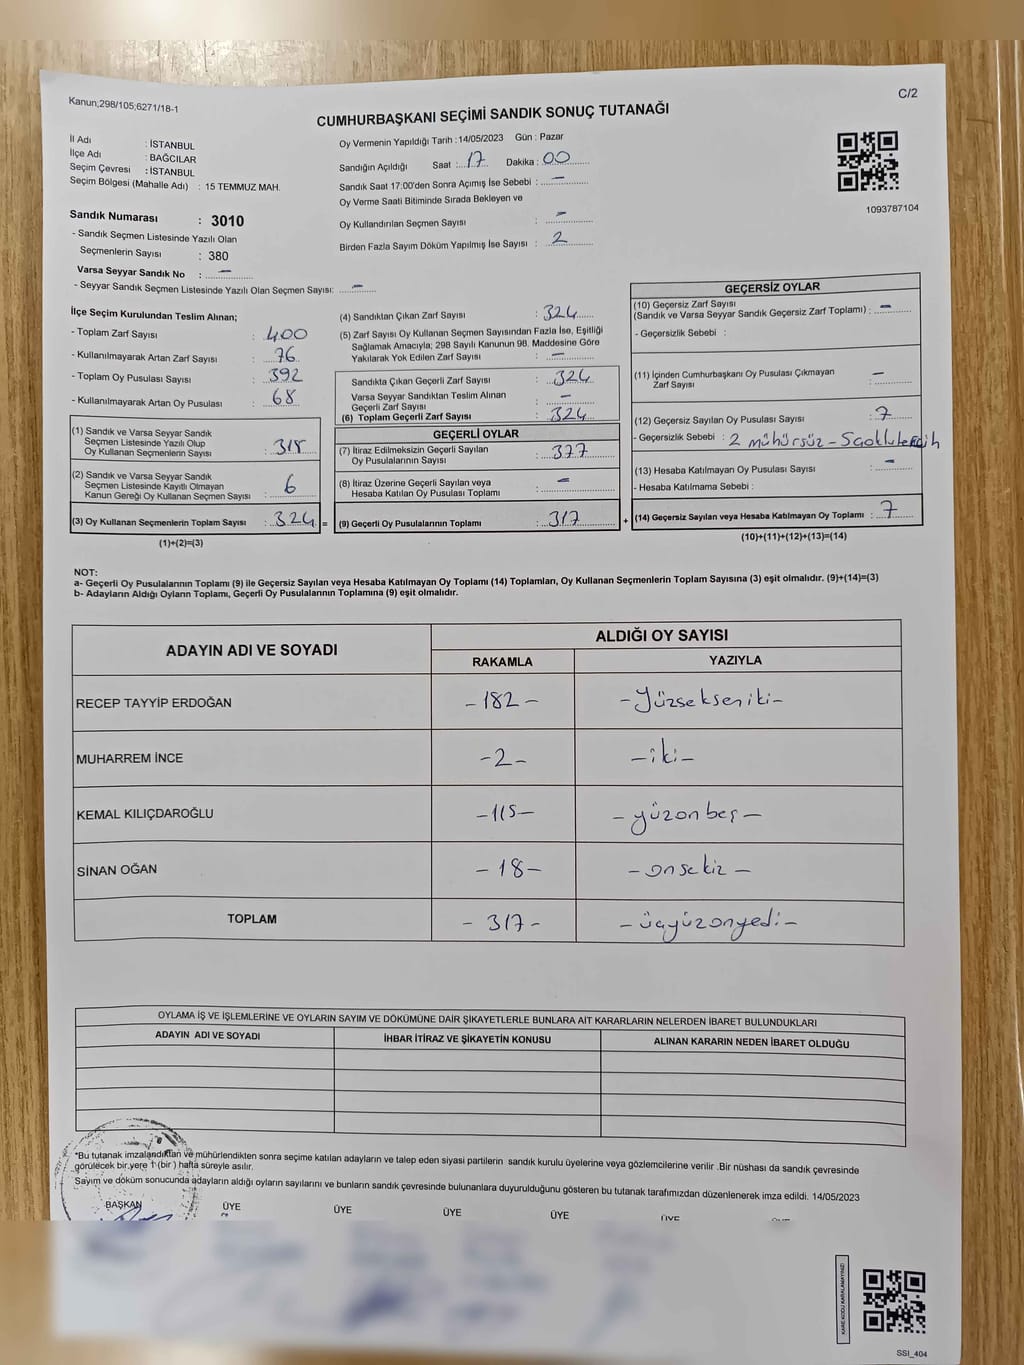 Kanun;298/105;6271/18-1
C/2
CUMHURBAŞKANI SEÇİMİ SANDIK SONUÇ TUTANAĞI
İl Adı : İSTANBUL
İlçe Adı : BAĞCILAR
Seçim Çevresi : İSTANBUL
Seçim Bölgesi (Mahalle Adı) : 15 TEMMUZ MAH.
Sandık Numarası : 3010
- Sandık Seçmen Listesinde Yazılı Olan
Seçmenlerin Sayısı : 380
Varsa Seyyar Sandık No : –
- Seyyar Sandık Seçmen Listesinde Yazılı Olan Seçmen Sayısı: –
Oy Vermenin Yapıldığı Tarih : 14/05/2023 Gün : Pazar
Sandığın Açıldığı Saat : 17 Dakika : 00
Sandık Saat 17:00'den Sonra Açımış İse Sebebi : –
Oy Verme Saati Bitiminde Sırada Bekleyen ve
Oy Kullandırılan Seçmen Sayısı : –
Birden Fazla Sayım Döküm Yapılmış İse Sayısı : 2
1093787104
İlçe Seçim Kurulundan Teslim Alınan;
- Toplam Zarf Sayısı : 400
- Kullanılmayarak Artan Zarf Sayısı : 76
- Toplam Oy Pusulası Sayısı : 392
- Kullanılmayarak Artan Oy Pusulası : 68
(1) Sandık ve Varsa Seyyar Sandık
Seçmen Listesinde Yazılı Olup
Oy Kullanan Seçmenlerin Sayısı : 318
(2) Sandık ve Varsa Seyyar Sandık
Seçmen Listesinde Kayıtlı Olmayan
Kanun Gereği Oy Kullanan Seçmen Sayısı : 6
(3) Oy Kullanan Seçmenlerin Toplam Sayısı : 324 =
(1)+(2)=(3)
(4) Sandıktan Çıkan Zarf Sayısı : 324
(5) Zarf Sayısı Oy Kullanan Seçmen Sayısından Fazla İse, Eşitliği
Sağlamak Amacıyla; 298 Sayılı Kanunun 98. Maddesine Göre
Yakılarak Yok Edilen Zarf Sayısı : –
Sandıkta Çıkan Geçerli Zarf Sayısı : 324
Varsa Seyyar Sandıktan Teslim Alınan
Geçerli Zarf Sayısı : –
(6) Toplam Geçerli Zarf Sayısı : 324
GEÇERLİ OYLAR
(7) İtiraz Edilmeksizin Geçerli Sayılan
Oy Pusulasının Sayısı : 377
(8) İtiraz Üzerine Geçerli Sayılan veya
Hesaba Katılan Oy Pusulası Toplamı : –
(9) Geçerli Oy Pusulalarının Toplamı : 317 +
GEÇERSİZ OYLAR
(10) Geçersiz Zarf Sayısı
(Sandık ve Varsa Seyyar Sandık Geçersiz Zarf Toplamı) : –
- Geçersizlik Sebebi :
(11) İçinden Cumhurbaşkanı Oy Pusulası Çıkmayan
Zarf Sayısı : –
(12) Geçersiz Sayılan Oy Pusulası Sayısı : 7
- Geçersizlik Sebebi : 2 mühürsüz -
(13) Hesaba Katılmayan Oy Pusulası Sayısı : –
- Hesaba Katılmama Sebebi :
(14) Geçersiz Sayılan veya Hesaba Katılmayan Oy Toplamı : 7
(10)+(11)+(12)+(13)=(14)
NOT:
a- Geçerli Oy Pusulalarının Toplamı (9) ile Geçersiz Sayılan veya Hesaba Katılmayan Oy Toplamı (14) Toplamları, Oy Kullanan Seçmenlerin Toplam Sayısına (3) eşit olmalıdır. (9)+(14)=(3)
b- Adayların Aldığı Oyların Toplamı, Geçerli Oy Pusulalarının Toplamına (9) eşit olmalıdır.
ADAYIN ADI VE SOYADI
ALDIĞI OY SAYISI
RAKAMLA YAZIYLA
RECEP TAYYİP ERDOĞAN -182- -Yüzseksen iki-
MUHARREM İNCE -2- -iki-
KEMAL KILIÇDAROĞLU -115- -yüzonbeş-
SİNAN OĞAN -18- -onsekiz-
TOPLAM -317- -üçyüzonyedi-
OYLAMA İŞ VE İŞLEMLERİNE VE OYLARIN SAYIM VE DÖKÜMÜNE DAİR ŞİKAYETLERLE BUNLARA AİT KARARLARIN NELERDEN İBARET BULUNDUKLARI
ADAYIN ADI VE SOYADI İHBAR İTİRAZ VE ŞİKAYETİN KONUSU ALINAN KARARIN NEDEN İBARET OLDUĞU
*Bu tutanak imzalandıktan ve mühürlendikten sonra seçime katılan adayların ve talep eden siyasi partilerin sandık kurulu üyelerine veya gözlemcilerine verilir .Bir nüshası da sandık çevresinde
görülecek bir yere 1 (bir ) hafta süreyle asılır.
Sayım ve döküm sonucunda adayların aldığı oyların sayılarını ve bunların sandık çevresinde bulunanlara duyurulduğunu gösteren bu tutanak tarafımızdan düzenlenerek imza edildi. 14/05/2023
BAŞKAN ÜYE ÜYE ÜYE ÜYE ÜYE
KARE KODU KARALAMAYINIZ!
SSI_404